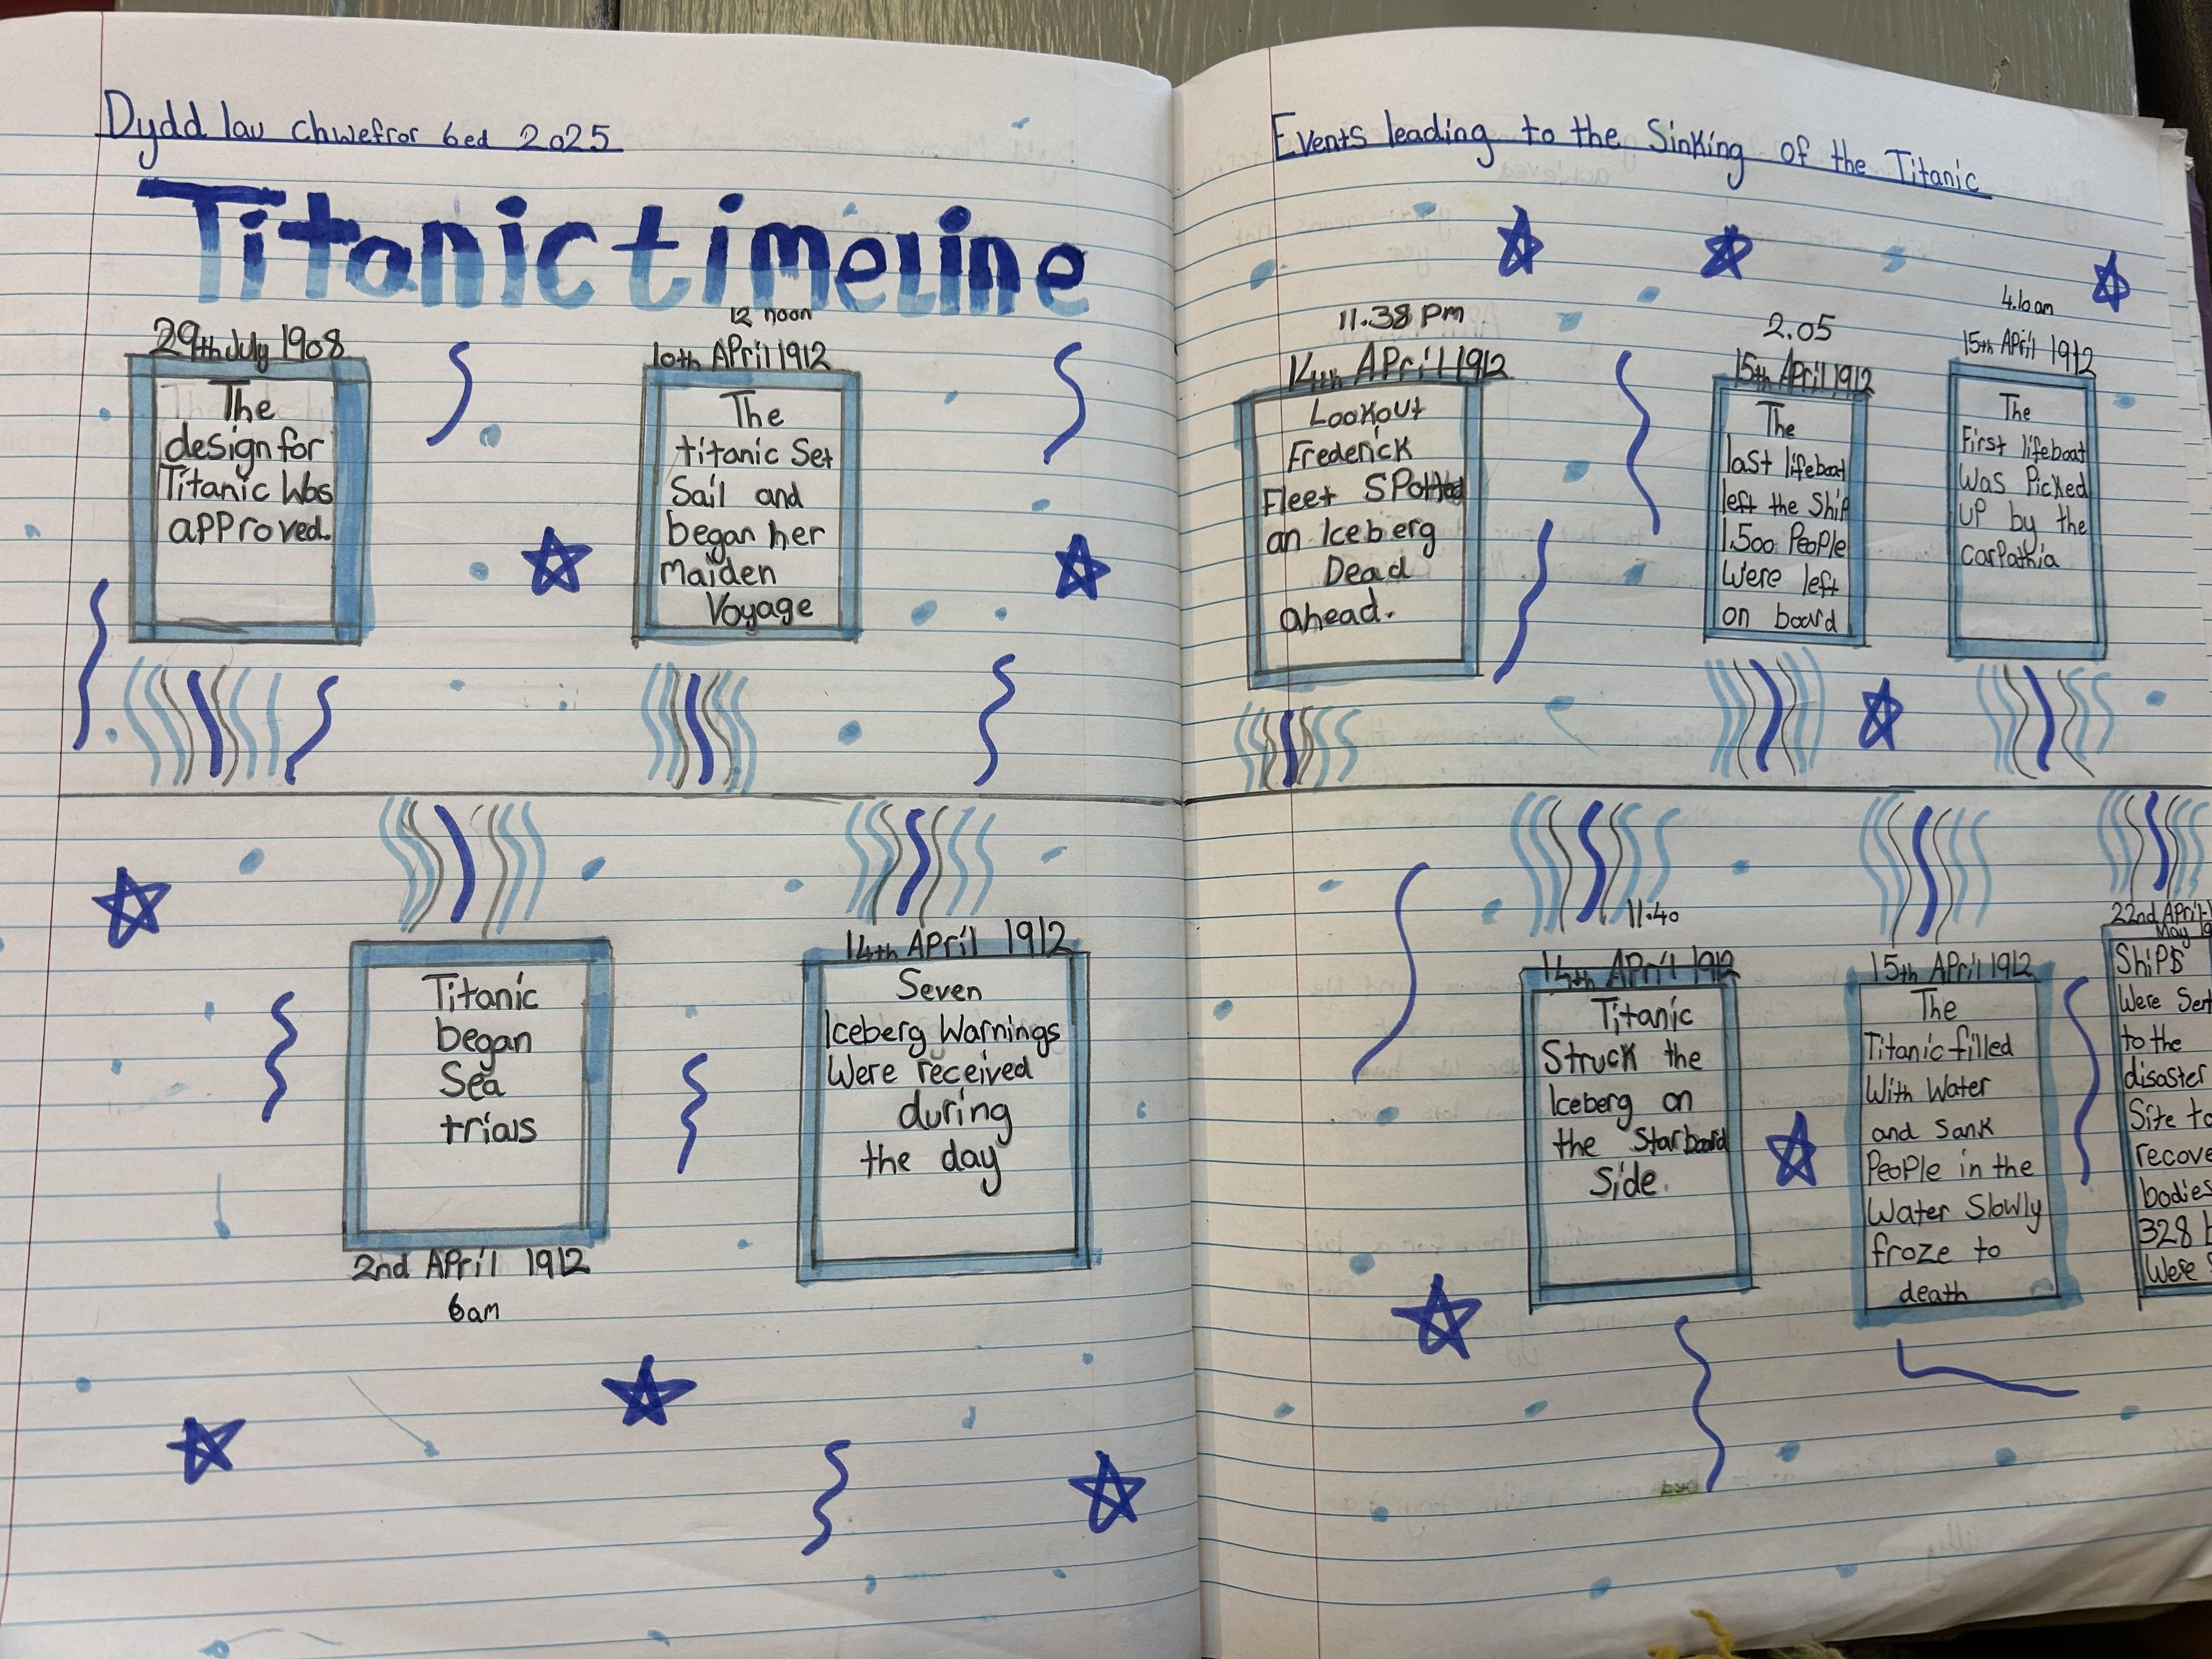 Dydd Iau chwefror 6ed 2025
Titanic timeline
29th July 1908
The
design for
Titanic Was
approved.
12 noon
10th April 1912
The
titanic Set
Sail and
began her
Maiden
Voyage
Titanic
began
Sea
trials
2nd April 1912
6am
14th April 1912
Seven
Iceberg Warnings
Were received
during
the day
Events leading to the Sinking of the Titanic
11.38 Pm
14th April 1912
Lookout
Frederick
Fleet Spotted
an Iceberg
Dead
ahead.
2.05
15th April 1912
The
last lifeboat
left the Ship
1,500 People
Were left
on board
4.10am
15th April 1912
The
First lifeboat
Was Picked
up by the
carpathia
11.40
14th April 1912
Titanic
Struck the
Iceberg on
the Starboard
Side.
15th April 1912
The
Titanic filled
With Water
and Sank
People in the
Water Slowly
froze to
death
22nd April
May
Ships
Were Sent
to the
disaster
Site to
recove
bodies
328
Were